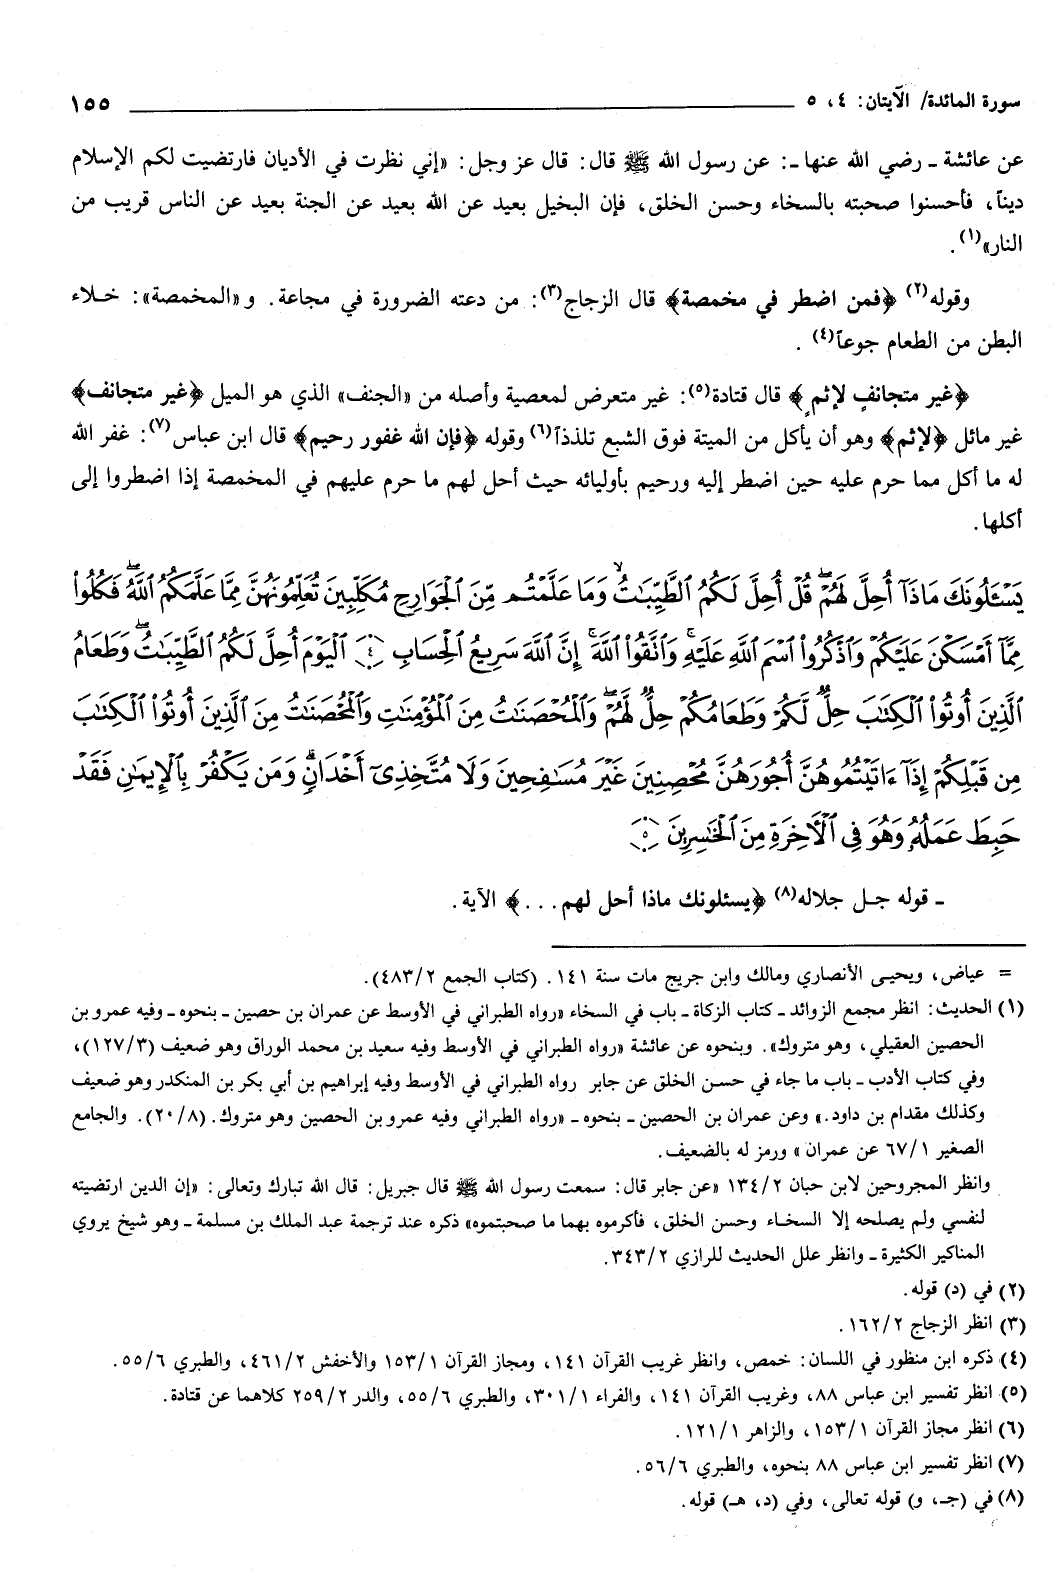 سورة المائدة/ الآيتان: ٤، ٥ ١٥٥
عن عائشة ـ رضي الله عنها ـ: عن رسول الله ﷺ قال: قال عز وجل: «إني نظرت في الأديان فارتضيت لكم الإسلام
ديناً، فأحسنوا صحبته بالسخاء وحسن الخلق، فإن البخيل بعيد عن الله بعيد عن الجنة بعيد عن الناس قريب من
النار»(١).
وقوله(٢) ﴿فمن اضطر في مخمصة﴾ قال الزجاج(٣): من دعته الضرورة في مجاعة. و«المخمصة»: خلاء
البطن من الطعام جوعاً(٤).
﴿غير متجانفٍ لإثمٍ﴾ قال قتادة(٥): غير متعرض لمعصية وأصله من «الجنف» الذي هو الميل ﴿غير متجانف﴾
غير مائل ﴿لإثم﴾ وهو أن يأكل من الميتة فوق الشبع تلذذاً(٦) وقوله ﴿فإن الله غفور رحيم﴾ قال ابن عباس(٧): غفر الله
له ما أكل مما حرم عليه حين اضطر إليه ورحيم بأوليائه حيث أحل لهم ما حرم عليهم في المخمصة إذا اضطروا إلى
أكلها.
يَسْـَٔلُونَكَ مَاذَآ أُحِلَّ لَهُمْۖ قُلْ أُحِلَّ لَكُمُ ٱلطَّيِّبَـٰتُۙ وَمَا عَلَّمْتُم مِّنَ ٱلْجَوَارِحِ مُكَلِّبِينَ تُعَلِّمُونَهُنَّ مِمَّا عَلَّمَكُمُ ٱللَّهُۖ فَكُلُوا۟
مِمَّآ أَمْسَكْنَ عَلَيْكُمْ وَٱذْكُرُوا۟ ٱسْمَ ٱللَّهِ عَلَيْهِۖ وَٱتَّقُوا۟ ٱللَّهَۚ إِنَّ ٱللَّهَ سَرِيعُ ٱلْحِسَابِ ﴿٤﴾ ٱلْيَوْمَ أُحِلَّ لَكُمُ ٱلطَّيِّبَـٰتُۖ وَطَعَامُ
ٱلَّذِينَ أُوتُوا۟ ٱلْكِتَـٰبَ حِلٌّ لَّكُمْ وَطَعَامُكُمْ حِلٌّ لَّهُمْۖ وَٱلْمُحْصَنَـٰتُ مِنَ ٱلْمُؤْمِنَـٰتِ وَٱلْمُحْصَنَـٰتُ مِنَ ٱلَّذِينَ أُوتُوا۟ ٱلْكِتَـٰبَ
مِن قَبْلِكُمْ إِذَآ ءَاتَيْتُمُوهُنَّ أُجُورَهُنَّ مُحْصِنِينَ غَيْرَ مُسَـٰفِحِينَ وَلَا مُتَّخِذِىٓ أَخْدَانٍۗ وَمَن يَكْفُرْ بِٱلْإِيمَـٰنِ فَقَدْ
حَبِطَ عَمَلُهُۥ وَهُوَ فِى ٱلْـَٔاخِرَةِ مِنَ ٱلْخَـٰسِرِينَ ﴿٥﴾
ـ قوله جل جلاله(٨) ﴿يسئلونك ماذا أحل لهم...﴾ الآية.
= عياض، ويحيى الأنصاري ومالك وابن جريج مات سنة ١٤١. (كتاب الجمع ٤٨٣/٢).
(١) الحديث: انظر مجمع الزوائد ـ كتاب الزكاة ـ باب في السخاء «رواه الطبراني في الأوسط عن عمران بن حصين ـ بنحوه ـ وفيه عمرو بن
الحصين العقيلي، وهو متروك». وبنحوه عن عائشة «رواه الطبراني في الأوسط وفيه سعيد بن محمد الوراق وهو ضعيف (١٢٧/٣)،
وفي كتاب الأدب ـ باب ما جاء في حسن الخلق عن جابر رواه الطبراني في الأوسط وفيه إبراهيم بن أبي بكر بن المنكدر وهو ضعيف
وكذلك مقدام بن داود.» وعن عمران بن الحصين ـ بنحوه ـ «رواه الطبراني وفيه عمرو بن الحصين وهو متروك. (٢٠/٨). والجامع
الصغير ٦٧/١ عن عمران» ورمز له بالضعيف.
وانظر المجروحين لابن حبان ١٣٤/٢ «عن جابر قال: سمعت رسول الله ﷺ قال جبريل: قال الله تبارك وتعالى: «إن الدين ارتضيته
لنفسي ولم يصلحه إلا السخاء وحسن الخلق، فأكرموه بهما ما صحبتموه» ذكره عند ترجمة عبد الملك بن مسلمة ـ وهو شيخ يروي
المناكير الكثيرة ـ وانظر علل الحديث للرازي ٣٤٣/٢.
(٢) في (د) قوله.
(٣) انظر الزجاج ١٦٢/٢.
(٤) ذكره ابن منظور في اللسان: خمص، وانظر غريب القرآن ١٤١، ومجاز القرآن ١٥٣/١ والأخفش ٤٦١/٢، والطبري ٥٥/٦.
(٥) انظر تفسير ابن عباس ٨٨، وغريب القرآن ١٤١، والفراء ٣٠١/١، والطبري ٥٥/٦، والدر ٢٥٩/٢ كلاهما عن قتادة.
(٦) انظر مجاز القرآن ١٥٣/١، والزاهر ١٢١/١.
(٧) انظر تفسير ابن عباس ٨٨ بنحوه، والطبري ٥٦/٦.
(٨) في (جـ، و) قوله تعالى، وفي (د، هـ) قوله.